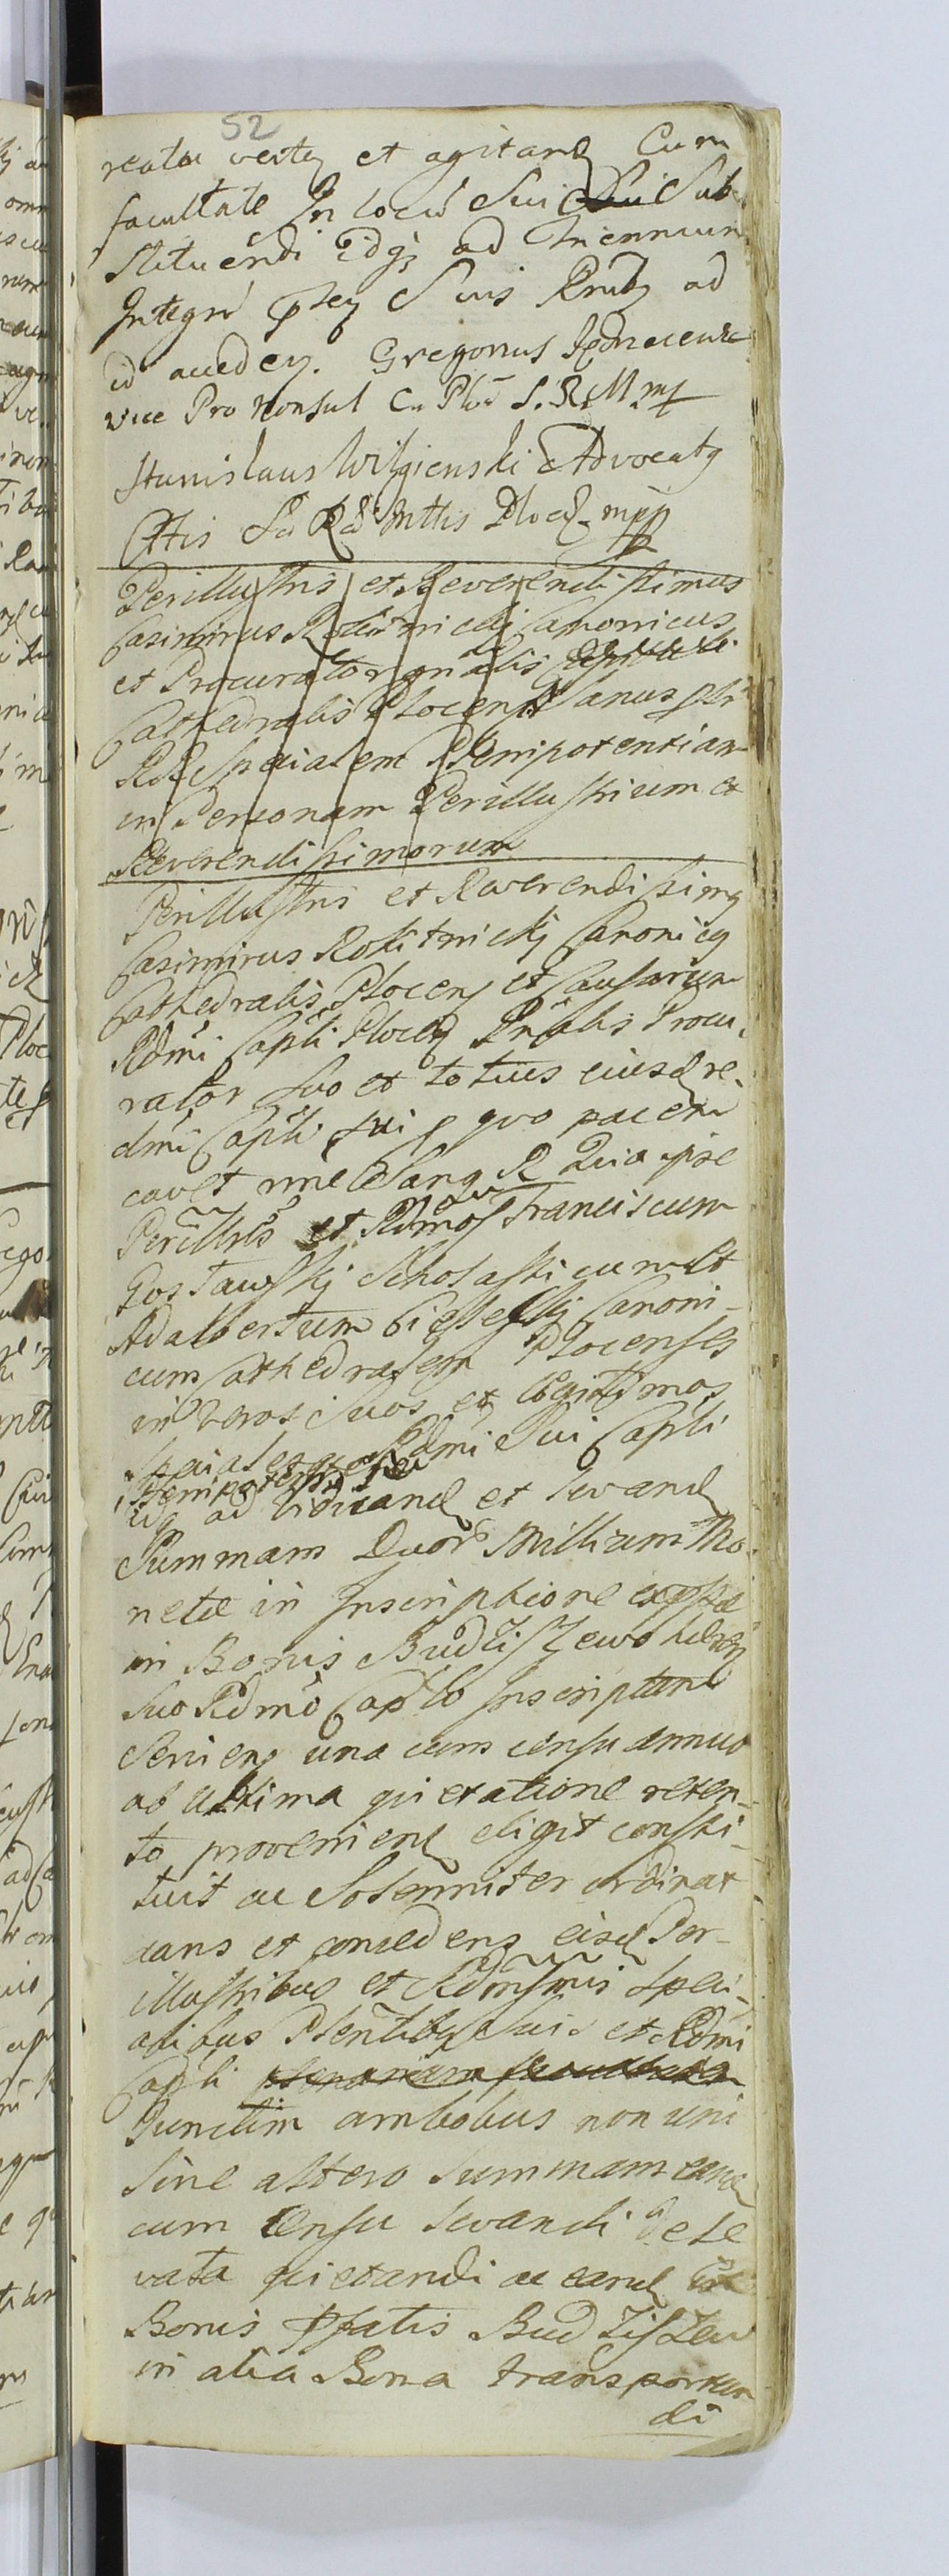 52
reata verteñ et agitand Cum
facultate In locũ Sui Sub
stituendi idq3 ad Triennium
Integrũ Suis Pntib9 ad
id acceden. Gregorius
vice Pro Consul C. S. R. M. mp
Stanislaus Wilgienski Advocat9
Cttis Sa Ra Mttis Plocen mpp
Perillustris et Reverendissimus
Casimirus Rokitnicki Canonicus
et Procurator gnalis
Cathedralis Plocensis Sanus
Specialem Plenipotentiam
in Personam Perillustrium et
Reverendissimorum
Perillustris et Reverendissim9
Casimirus Rokitnickj Canonic9
Cathedralis Plocens et Causarum
Rdmi Capli Plocen Gnalis Procu-
rator suo et totius eiusd re-
dmi Capli sui quo pacem
cavet Sanus Quia ipse
Perillres et Rdmos Franciscum
Gostawskj Scholasticum et
Adalbertum Canoni-
cum Cathedralem Plocenses
in veros Suos et legitimos
Speciales Rdmi Sui Capli
Plenipotentes
idq ad levand et levand
Summam Quor Millium Mo-
netae in Inscriptione
in Bonis Budziszewo
suo Rdmo Caplo Inscriptam
Servien una cum censu annuo
ab ultima quietatione reten-
to provenien eligit consti-
tuit ac Solenniter ordinat
dans et concedens eisd Per-
illustribus et Rdmis Speci-
alibus Plentibus Suis et Rdmi
Capli
Junctim ambobus non uni
sine altero summam eand
cum Censu levandi de le
vata quietandi ac eand
Bonis Pfatis Budziszew
in alia Bona transportan
di